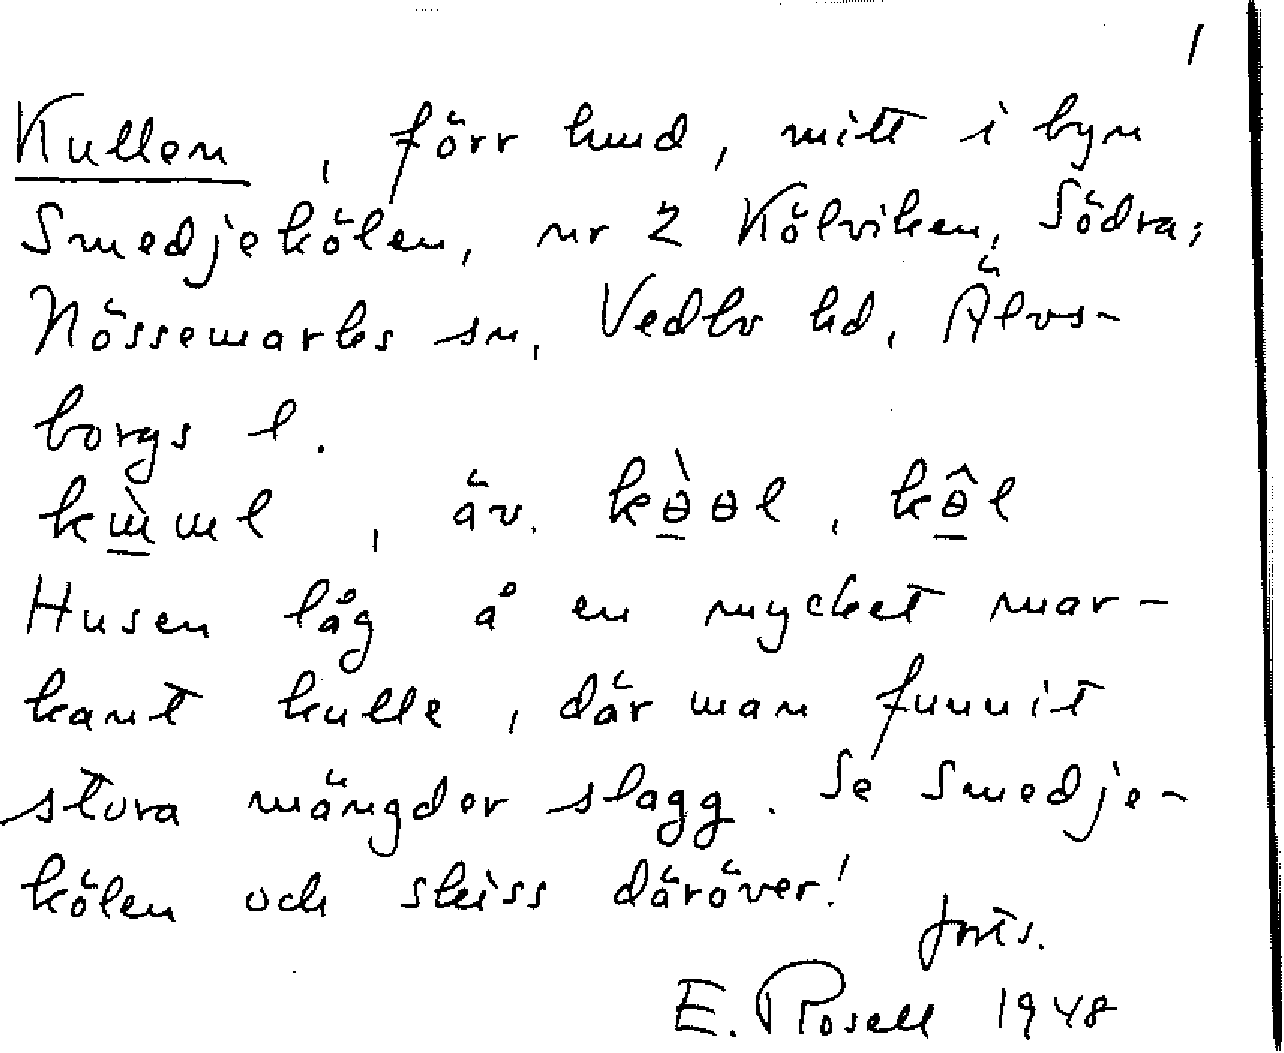 1
Kullen, förr hmd, mitt i byn
Smedjekölen, nr 2 Kölviken, Södra;
Nössemarks sn, Vedbo hd, Älvs-
borgs l.
kɯ̀ɯl, äv. kɵ̀ɵl, kɵ̂l
Husen låg å en mycket mar-
kant kulle, där man funnit
stora mängder slagg. Se Smedje-
kölen och skiss däröver!
forts.
E. Rosell 1948